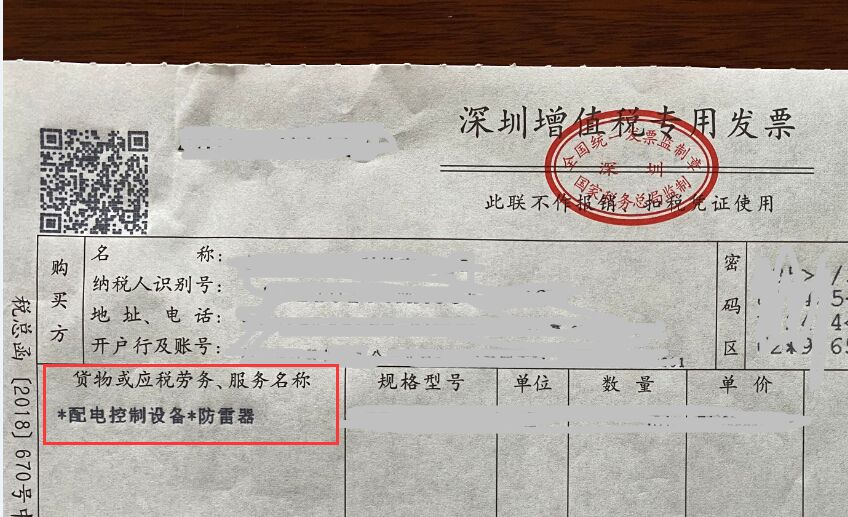 深圳增值税专用发票
全国统一发票监制章
深圳
国家税务总局监制
此联不作报销、扣税凭证使用
购买方
名称:
纳税人识别号:
地址、电话:
开户行及账号:
密码区
税总函〔2018〕670号中
货物或应税劳务、服务名称
规格型号
单位
数量
单价
*配电控制设备*防雷器